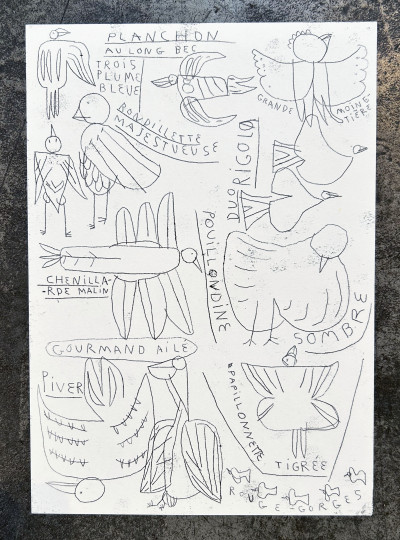 PLANCHON
AU LONG BEC
TROIS
PLUME
BLEUE
GRANDE
MOINE-
TIÈRE
RONDILLETTE
MAJESTUEUSE
DUO RIGOLA
POUILLONDINE
SOMBRE
CHENILLA-
-RDE MALIN
GOURMAND AILÉ
PIVER
PAPILLONNETTE
TIGRÉE
ROUGE-GORGES